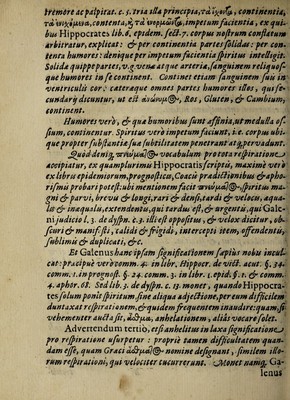 tremore ac palpitat. c. 5. tria illa principia, τὰ ἴσχοντα, continentia,
τὰ ἐνεχόμενα, contenta, & τὰ ἐνορμῶντα, impetum facientia, ex quibus
Hippocrates lib. 6. epidem. sect. 7. corpus nostrum constatum
arbitratur, explicat: & per continentia partes solidas: per contenta
humores: denique per impetum facientia spiritus intelligit.
Solidæ quippe partes, v.g. venæ atque arteriæ, sanguinem reliquosque
humores in se continent. Continet etiam sanguinem suis in
ventriculis cor: cæteraque omnes partes humores illos, qui secundary
dicuntur, ut est Ros, Gluten, & Cambium,
continent.
Humores verò, & quæ humoribus sunt affinia, ut medulla ossium,
continentur. Spiritus verò impetum faciunt, i.e. corpus ubique
propter substantiæ suæ subtilitatem penetrant atq; pervadunt.
Quòd demiq; vocabulum pro tota respiratione
accipiatur, ex quamplurimis Hippocratis scriptis, maximè verò
ex libru epidemiorum, prognosticō, Coacis prædictionibus & aphorismis
probari potest: ubi mentionem facit spiritus magni
& parvi, brevis & longi, rari & densi, tardi & velocis, æqualis
& inæqualis, extendentis, qui tardus est, & urgentis, qui Galeni
judicio l. 3. de dyspn. c. 7. illi est oppositus, & velox dicitur, obscuri
& manifesti, calidi & frigidi, intercepti item, offendentis,
sublimis & duplicati, &c.
Et Galenus hanc ipsam significationem sæpius nobis inculcat:
præcipuè verò comm. 4. in libr. Hippocr. de vict. acut. §. 24.
comm. 1. in prognost. §. 24. comm. 3. in libr. 1. epid. §. 1. & comm.
4. aphor. 68. Sed lib. 3. de dyspn. c. 13. monet, quando Hippocrates
solum ponit spiritum sine aliqua adjectione, per eum difficilem
duntaxat respirationem, & quidem frequentem inaudire: quam, si
vehementer aucta sit, ἄσθμα, anhelationem, aliàs vocare solet.
Advertendum tertiò, etsi anhelitus in laxa significatione
pro respiratione usurpetur: propriè tamen difficultatem quandam
esse, quam Græci nomine designant, similem illorum
respirationi, qui velociter cucurrerunt. Monet namq; Galenus